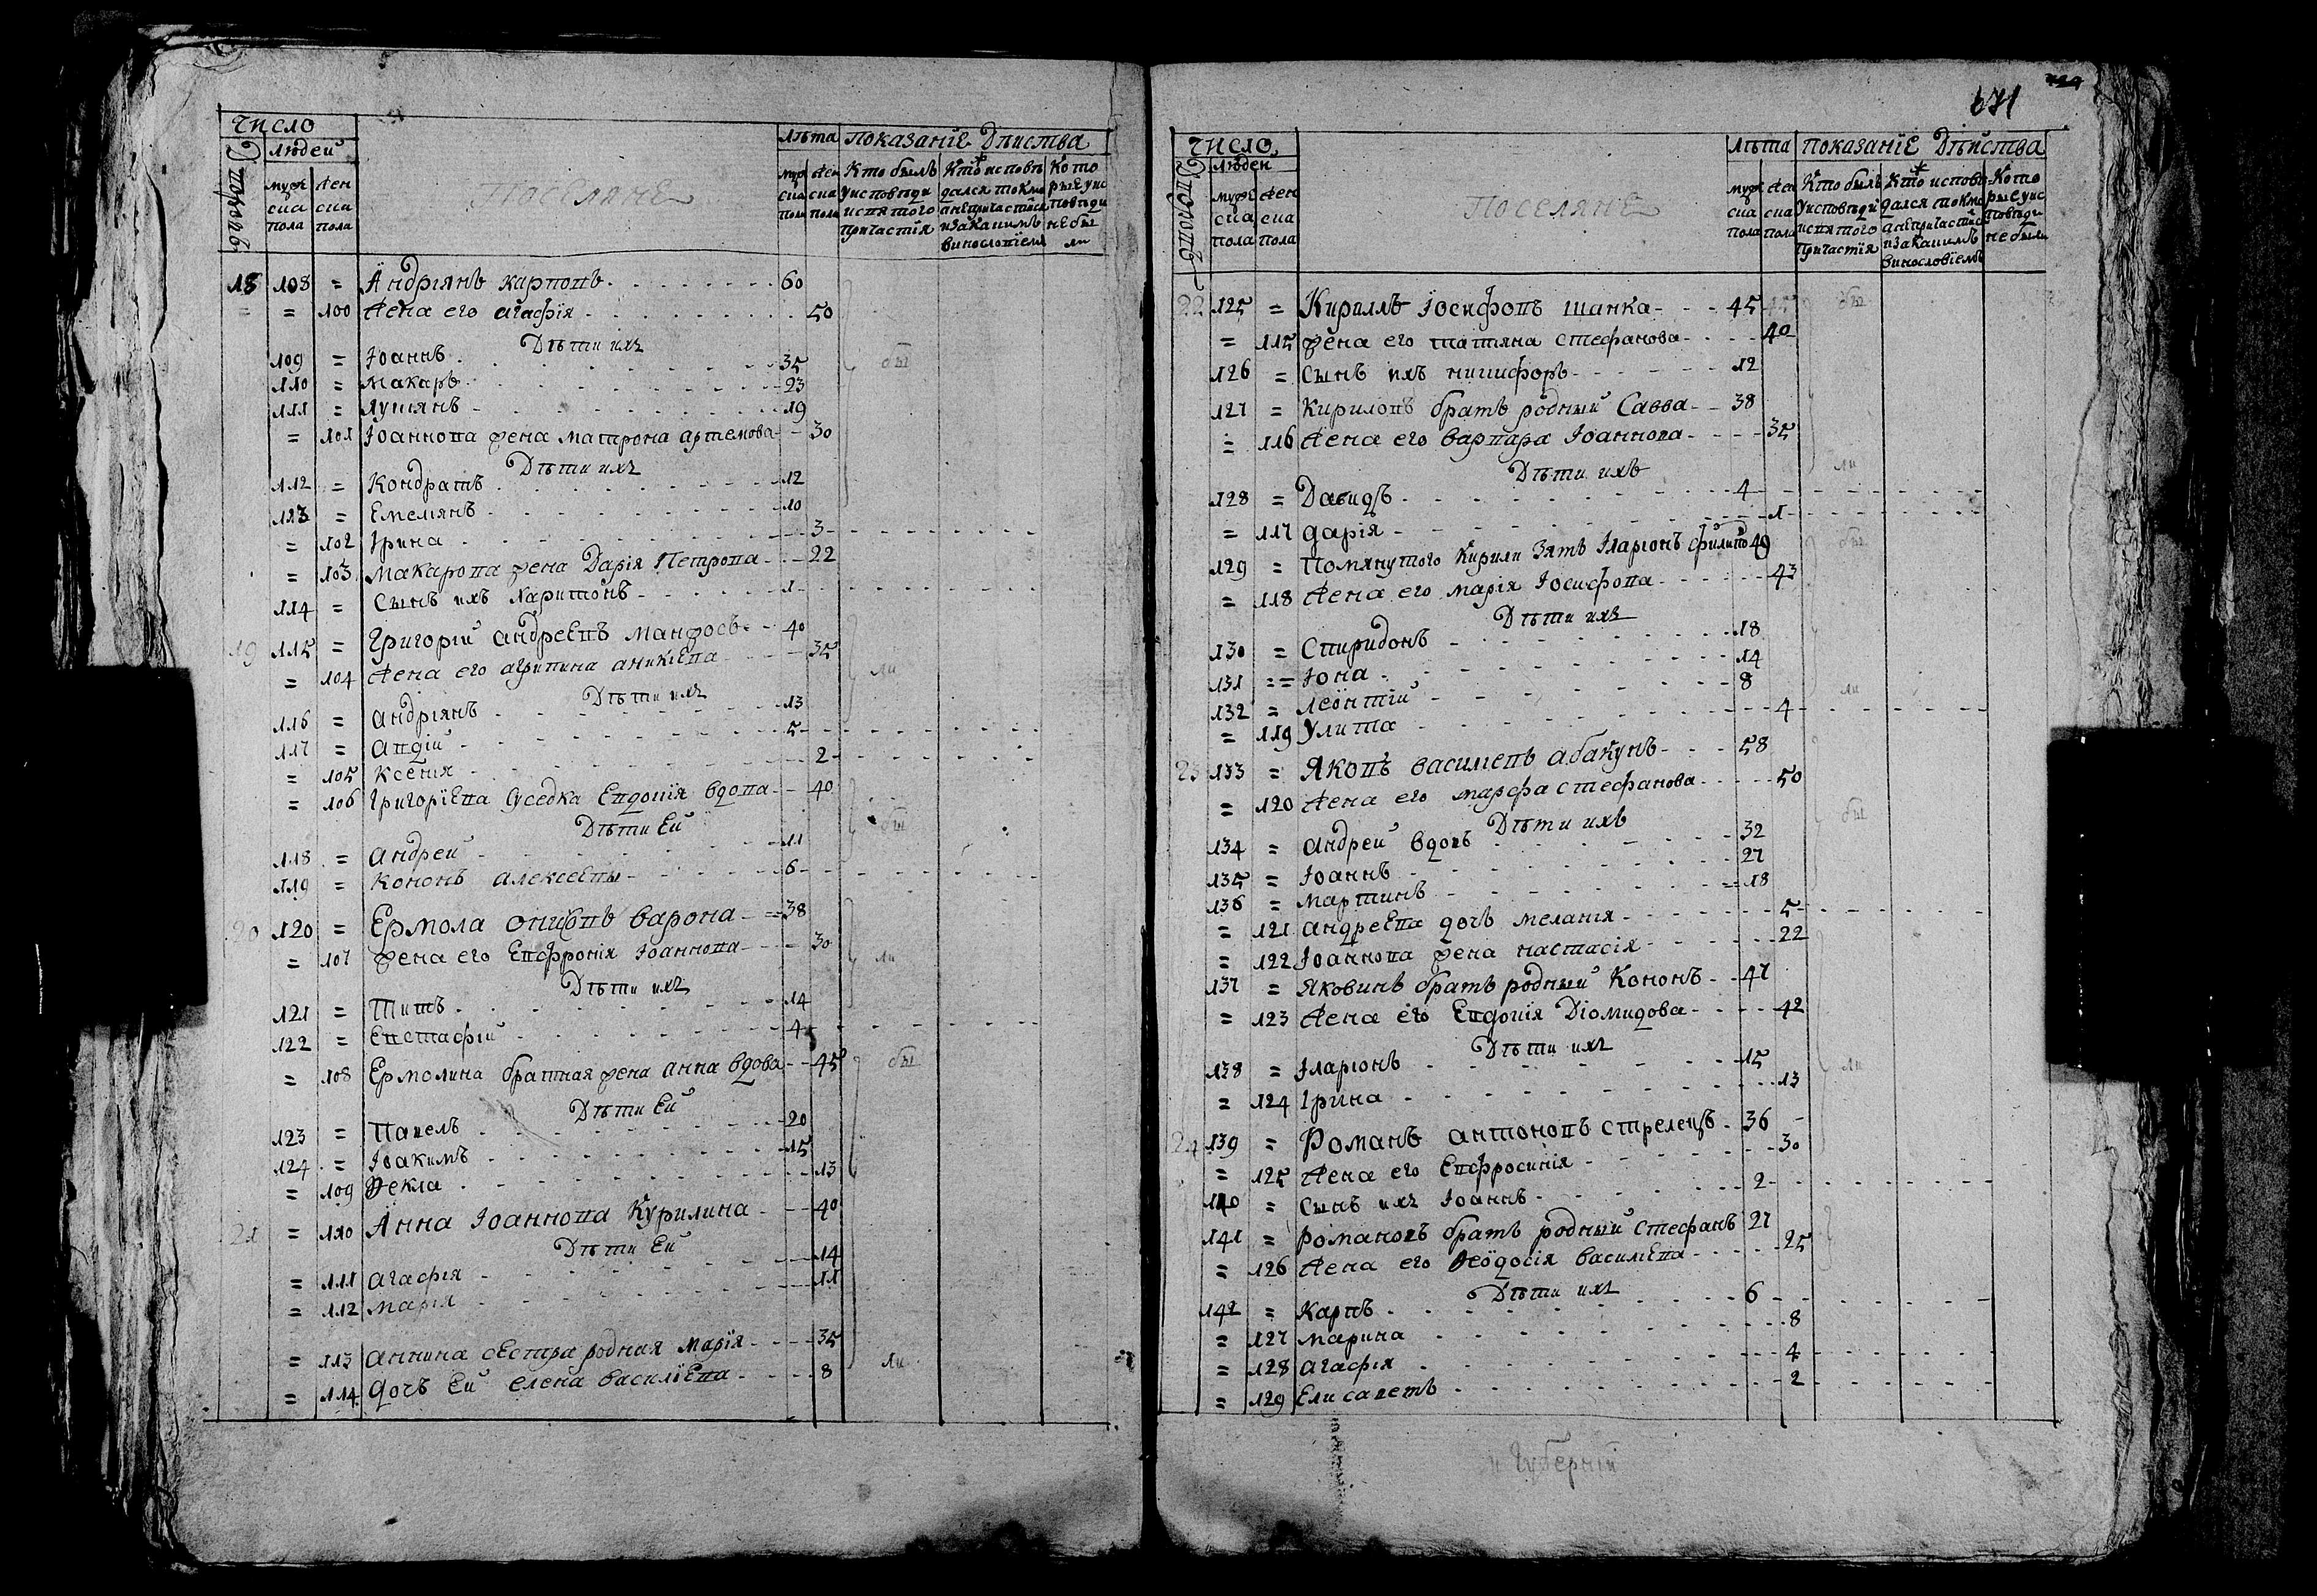 число
людей
Дворовъ
мужеска пола
женска пола
Поселяне
лѣта
муж ска пола
жен ска пола
показаніе Дѣиства
Кто былъ у исповѣди и святого причастія
Кто исповѣдался токмо а не причастился и за какимъ винословіемъ
Которые у исповѣди не были
18 108 = Андріянъ карповъ 60
= = 100 Жена его агафія 50
Дѣти ихъ
109 = Іоаннъ 35
110 = Макаръ 23
111 = Лукіянъ 19
= 101 Іоаннова жена матрона артемова 30
Дѣти ихъ
112 = Кондратъ 12
113 = Емеліянъ 10
= 102 Ірина 3
= 103 Макарова жена Дарія Петрова 22
114 = Сынъ ихъ Харитонъ 1
19 115 = Григорій андреевъ 40
= 104 Жена его агрипина 35
Дѣти ихъ
116 = андріянъ 13
117 = авдій 5
= 105 Ксенія 2
= 106 Григоріева суседка Евдокія вдова 40
Дѣти Ей
118 = андрей 11
119 = кононъ алексеевы 6
20 120 = Ермола варона 38
= 107 жена его Евфронія Іоаннова 30
Дѣти ихъ
121 = Титъ 14
122 = Евстафій 4
= 108 Ермолина братняя жена анна вдова 45
Дѣти Ей
123 = Павелъ 20
124 = Іоакимъ 15
= 109 Ѳекла 13
21 = 110 Анна Іоаннова Курилина 40
Дѣти Ей
= 111 агафія 14
= 112 марія 11
= 113 аннина сестра родная марія 35
= 114 дочъ Ей елена василіева 8
бы
ли
бы
ли
бы
ли
671
число
людей
Дворовъ
мужеска пола
женска пола
Поселяне
лѣта
муж ска пола
жен ска пола
показаніе Дѣйства
Кто былъ у исповѣди и святого причастія
Кто исповѣдался токмо а не причастился и за какимъ винословіемъ
Которые у исповѣди не были
22 125 = Кириллъ Іосифовъ шанка 45
= 115 жена его татяна стефанова 40
126 = Сынъ ихъ никифоръ 12
127 = Кириловъ братъ родный Савва 38
= 116 Жена его варвара Іоаннова 35
Дѣти ихъ
128 = Давидъ 4
= 117 дарія 1
129 = Помянутого Кирили зять Іларіонъ 49
= 118 Жена его марія Іосифова 43
Дѣти ихъ
130 = Спиридонъ 18
131 = = Іона 14
132 = Леонтій 8
= 119 Улита 4
23 133 = Яковъ василіевъ абакунъ 58
= 120 Жена его марфа стефанова 50
Дѣти ихъ
134 = андрей вдовъ 32
135 = Іоаннъ 27
136 = мартинъ 18
= 121 андреева дочь меланія 5
= 122 Іоаннова жена настасія 22
137 = Яковинъ братъ родный Кононъ 47
= 123 Жена его Евдокія Діомидова 42
Дѣти ихъ
138 = Іларіонъ 15
= 124 Ірина 13
24 139 = Романъ антоновъ стрелецъ 36
= 125 Жена его Евфросинія 30
140 = Сынъ ихъ Іоаннъ 2
141 = Романовъ братъ родный стефанъ 27
= 126 Жена его Ѳеодосія василіева 25
Дѣти ихъ
142 = Карпъ 6
= 127 марина 8
= 128 агафія 4
= 129 Елисаветъ 2
бы
ли
бы
ли
бы
ли
и Губерніи